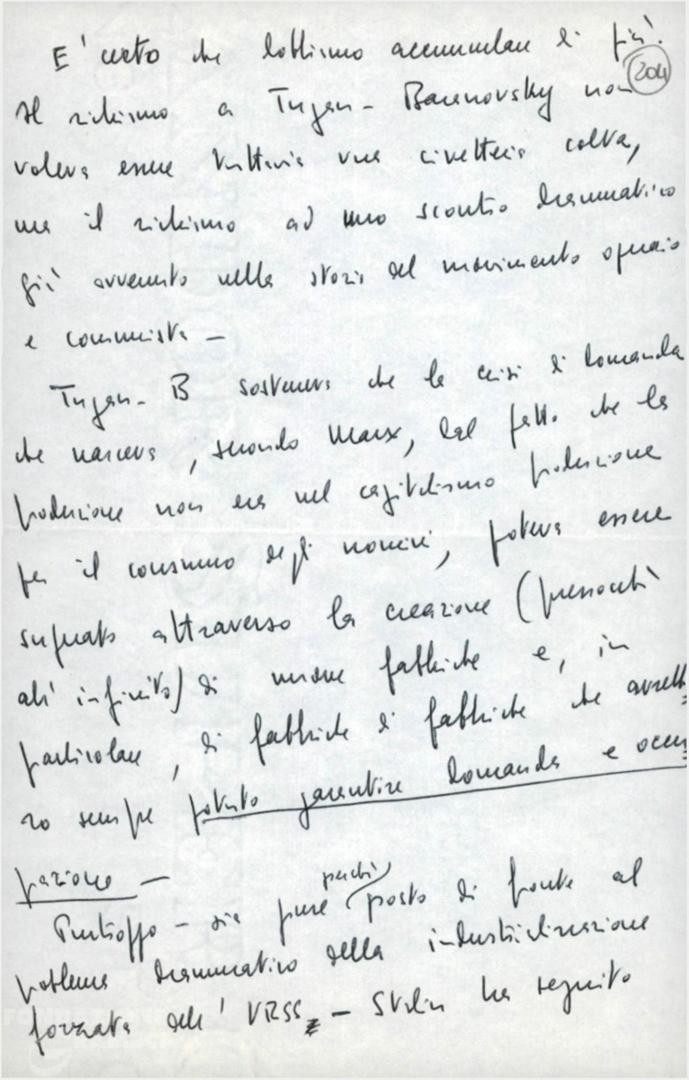 E' certo che dobbiamo accumulare di più.
204
Il richiamo a Tugan-Baranovsky non
voleva essere tuttavia una civetteria colta,
ma il richiamo ad uno scontro drammatico
già avvenuto nella storia del movimento operaio
e comunista —
Tugan-B sosteneva che la crisi di domanda
che nasceva, secondo Marx, dal fatto che la
produzione non era nel capitalismo produzione
per il consumo degli uomini, poteva essere
superata attraverso la creazione (pressoché
all'infinito) di nuove fabbriche e, in
particolare, di fabbriche di fabbriche che avrebbe
ro sempre potuto garantire domanda e occu
pazione —
Purtroppo - sia pure perché posto di fronte al
problema drammatico della industrializzazione
forzata dell'URSS - Stalin ha seguito